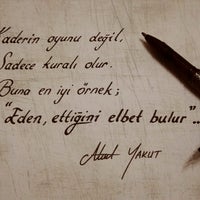 Kaderin oyunu değil,
Sadece kuralı olur.
Buna en iyi örnek;
"Eden, ettiğini elbet bulur"..
YAKUT